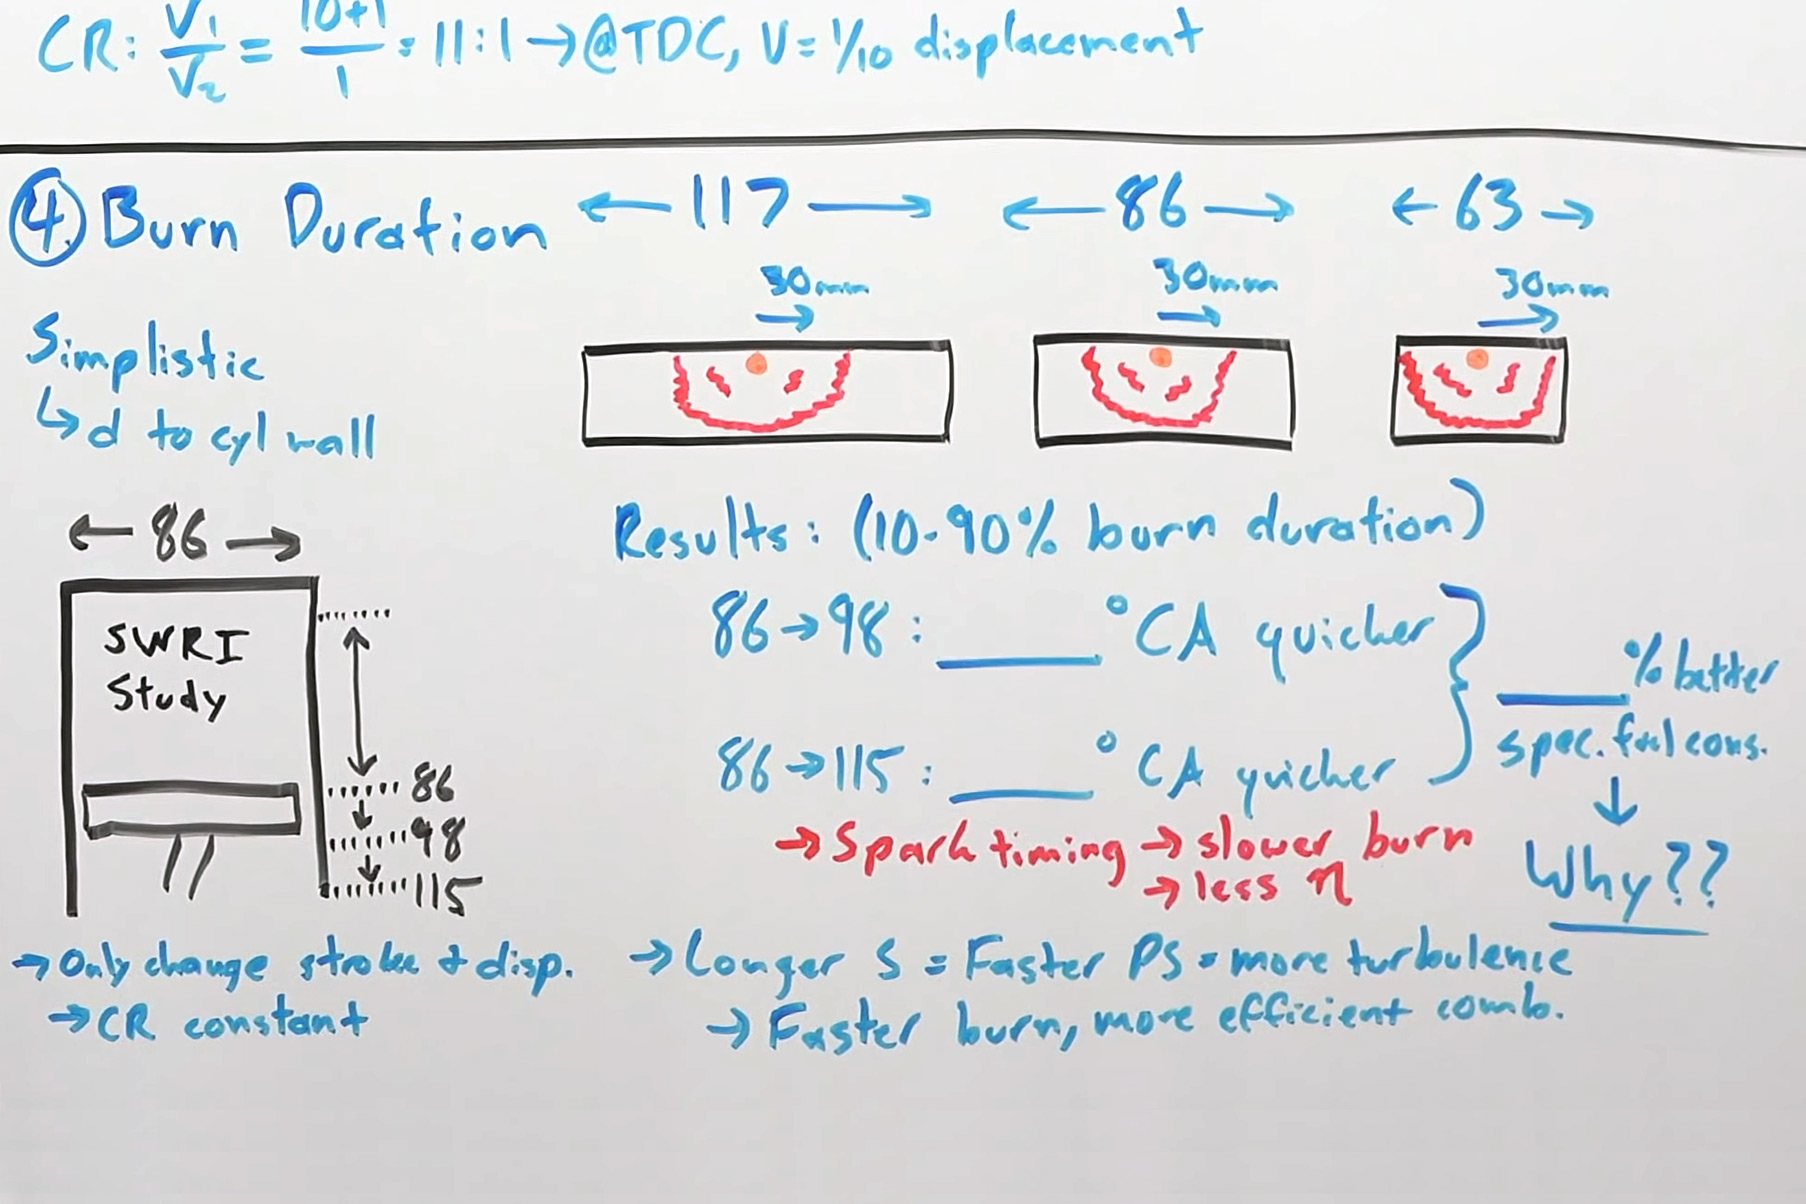 CR: V1/V2 = 10+1/1 = 11:1 → @TDC, V = 1/10 displacement
④ Burn Duration
← 117 →
← 86 →
← 63 →
30mm
30mm
30mm
Simplistic
↳ d to cyl wall
← 86 →
SWRI
Study
86
98
115
→ Only change stroke & disp.
→ CR constant
Results: (10-90% burn duration)
86→98: ____ °CA quicker
86→115: ____ °CA quicker
____% better
spec. fuel cons.
↓
Why??
→ Spark timing → slower burn
→ less η
→ Longer S = Faster PS = more turbulence
→ Faster burn, more efficient comb.